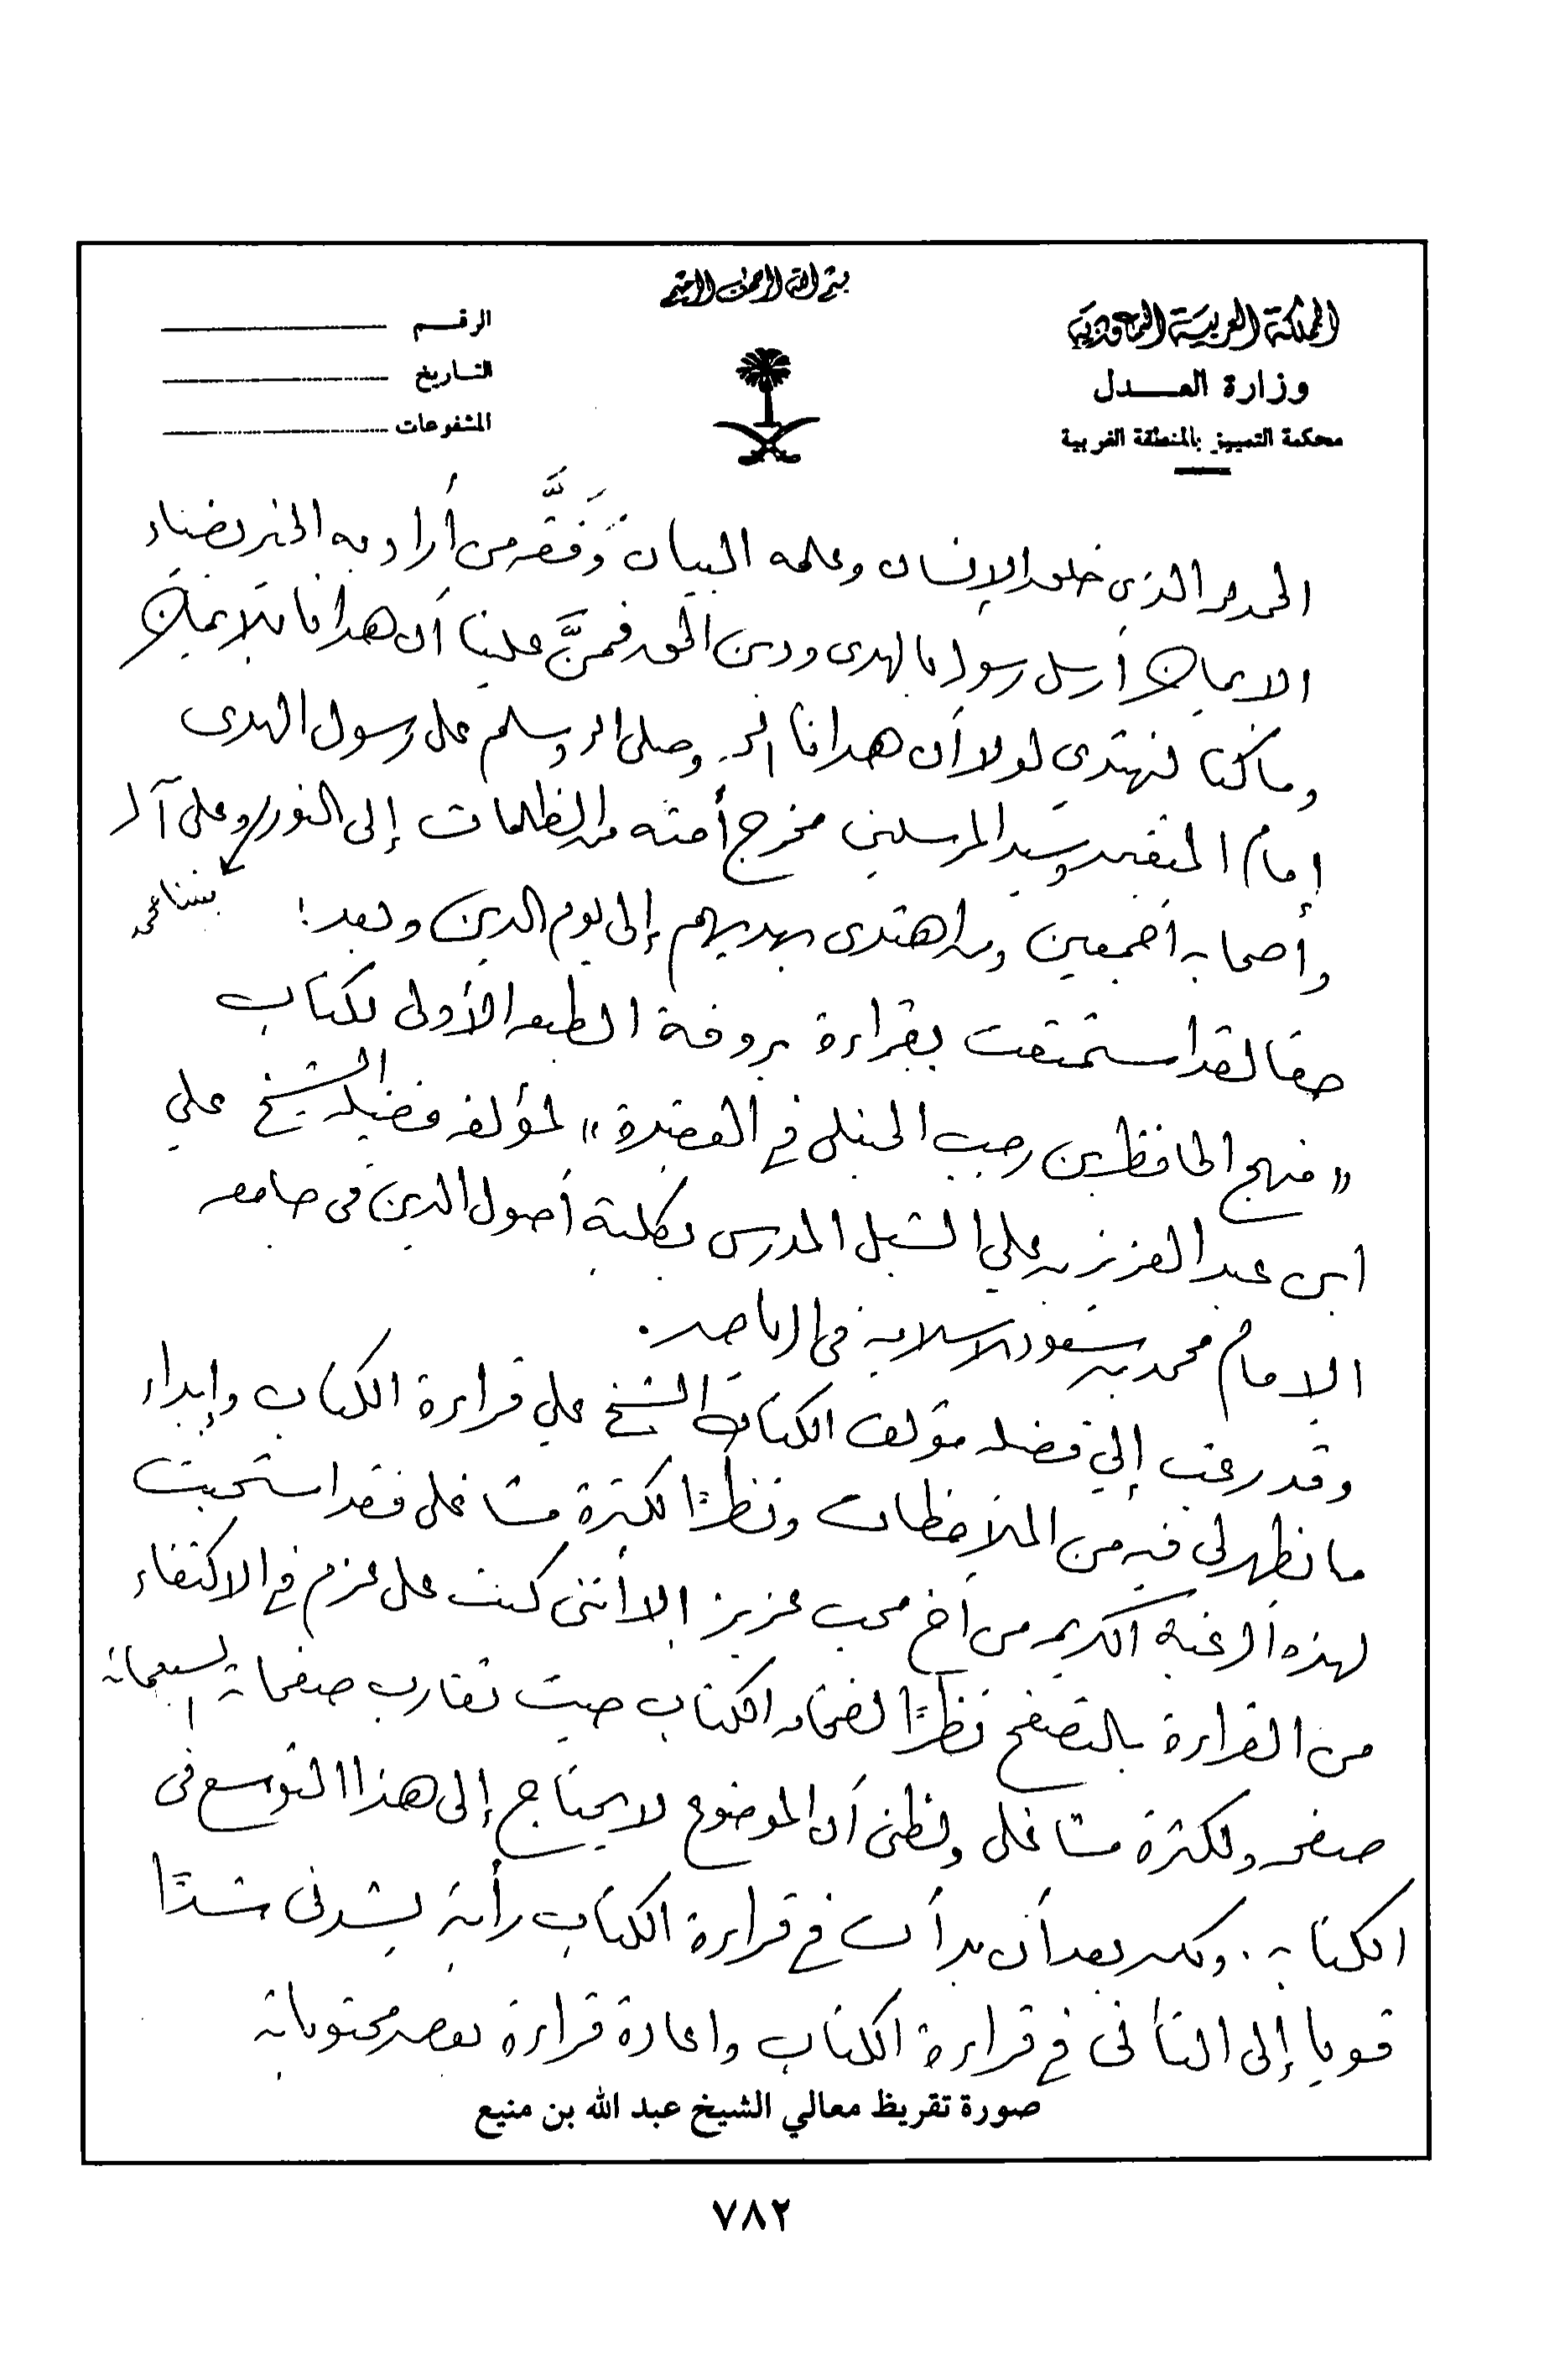 بسم الله الرحمن الرحيم
المملكة العربية السعودية
وزارة العدل
محكمة التمييز بالمنطقة الغربية
الرقم
التاريخ
المشفوعات
الحمد لله الذي خلق الإنسان وعلمه البيان وَفَقَّه من أراد به الخير بضياء
الايمان أرسل رسوله بالهدى ودين الحق فمنَّ علينا أن هدانا للايمان
وما كنا نهتدي لولا أن هدانا الله. وصلى الله وسلم على رسول الهدى
إمام المتقين وسيد المرسلين مخرج أمته من الظلمات إلى النور وعلى آله
نبينا محمد
وأصحابه أجمعين ومن اهتدى بهديهم إلى يوم الدين وبعد:
حقا لقد استمتعت بقراءة بروفة الطبعه الأولى لكتاب
« منهج الحافظ بن رجب الحنبلي في العقيدة » لمؤلفه فضيلة الشيخ علي
ابن عبد العزيز بن علي الشبل المدرس بكلية أصول الدين في جامعه
الامام محمد بن سعود الاسلاميه في الرياض.
وقد رغب إليَّ فضيلة مؤلف الكتاب الشيخ علي قراءة الكتاب وإبداء
ما نظهر لي فيه من الملاحظات ونظرًا لكثرة مشاغلي فقد استجبت
لهذه الرغبه الكريمه من أخ محب عزيز إلا أنني كنت على عزم في الاكتفاء
من القراءة بالتصفح نظرًا لضخامه الكتاب حيث تقارب صفحاته السبعمائة
صفحه ولكثرة مشاغلي ولظني أن الموضوع لا يحتاج إلى هذا التوسع في
الكتابه. ولكن بعد أن بدأت في قراءة الكتاب رأيته يشدني شدًّا
قويا إلى التأني في قراءة الكتاب واعادة قراءة بعض محتوياته
صورة تقريظ معالي الشيخ عبد الله بن منيع
٧٨٢